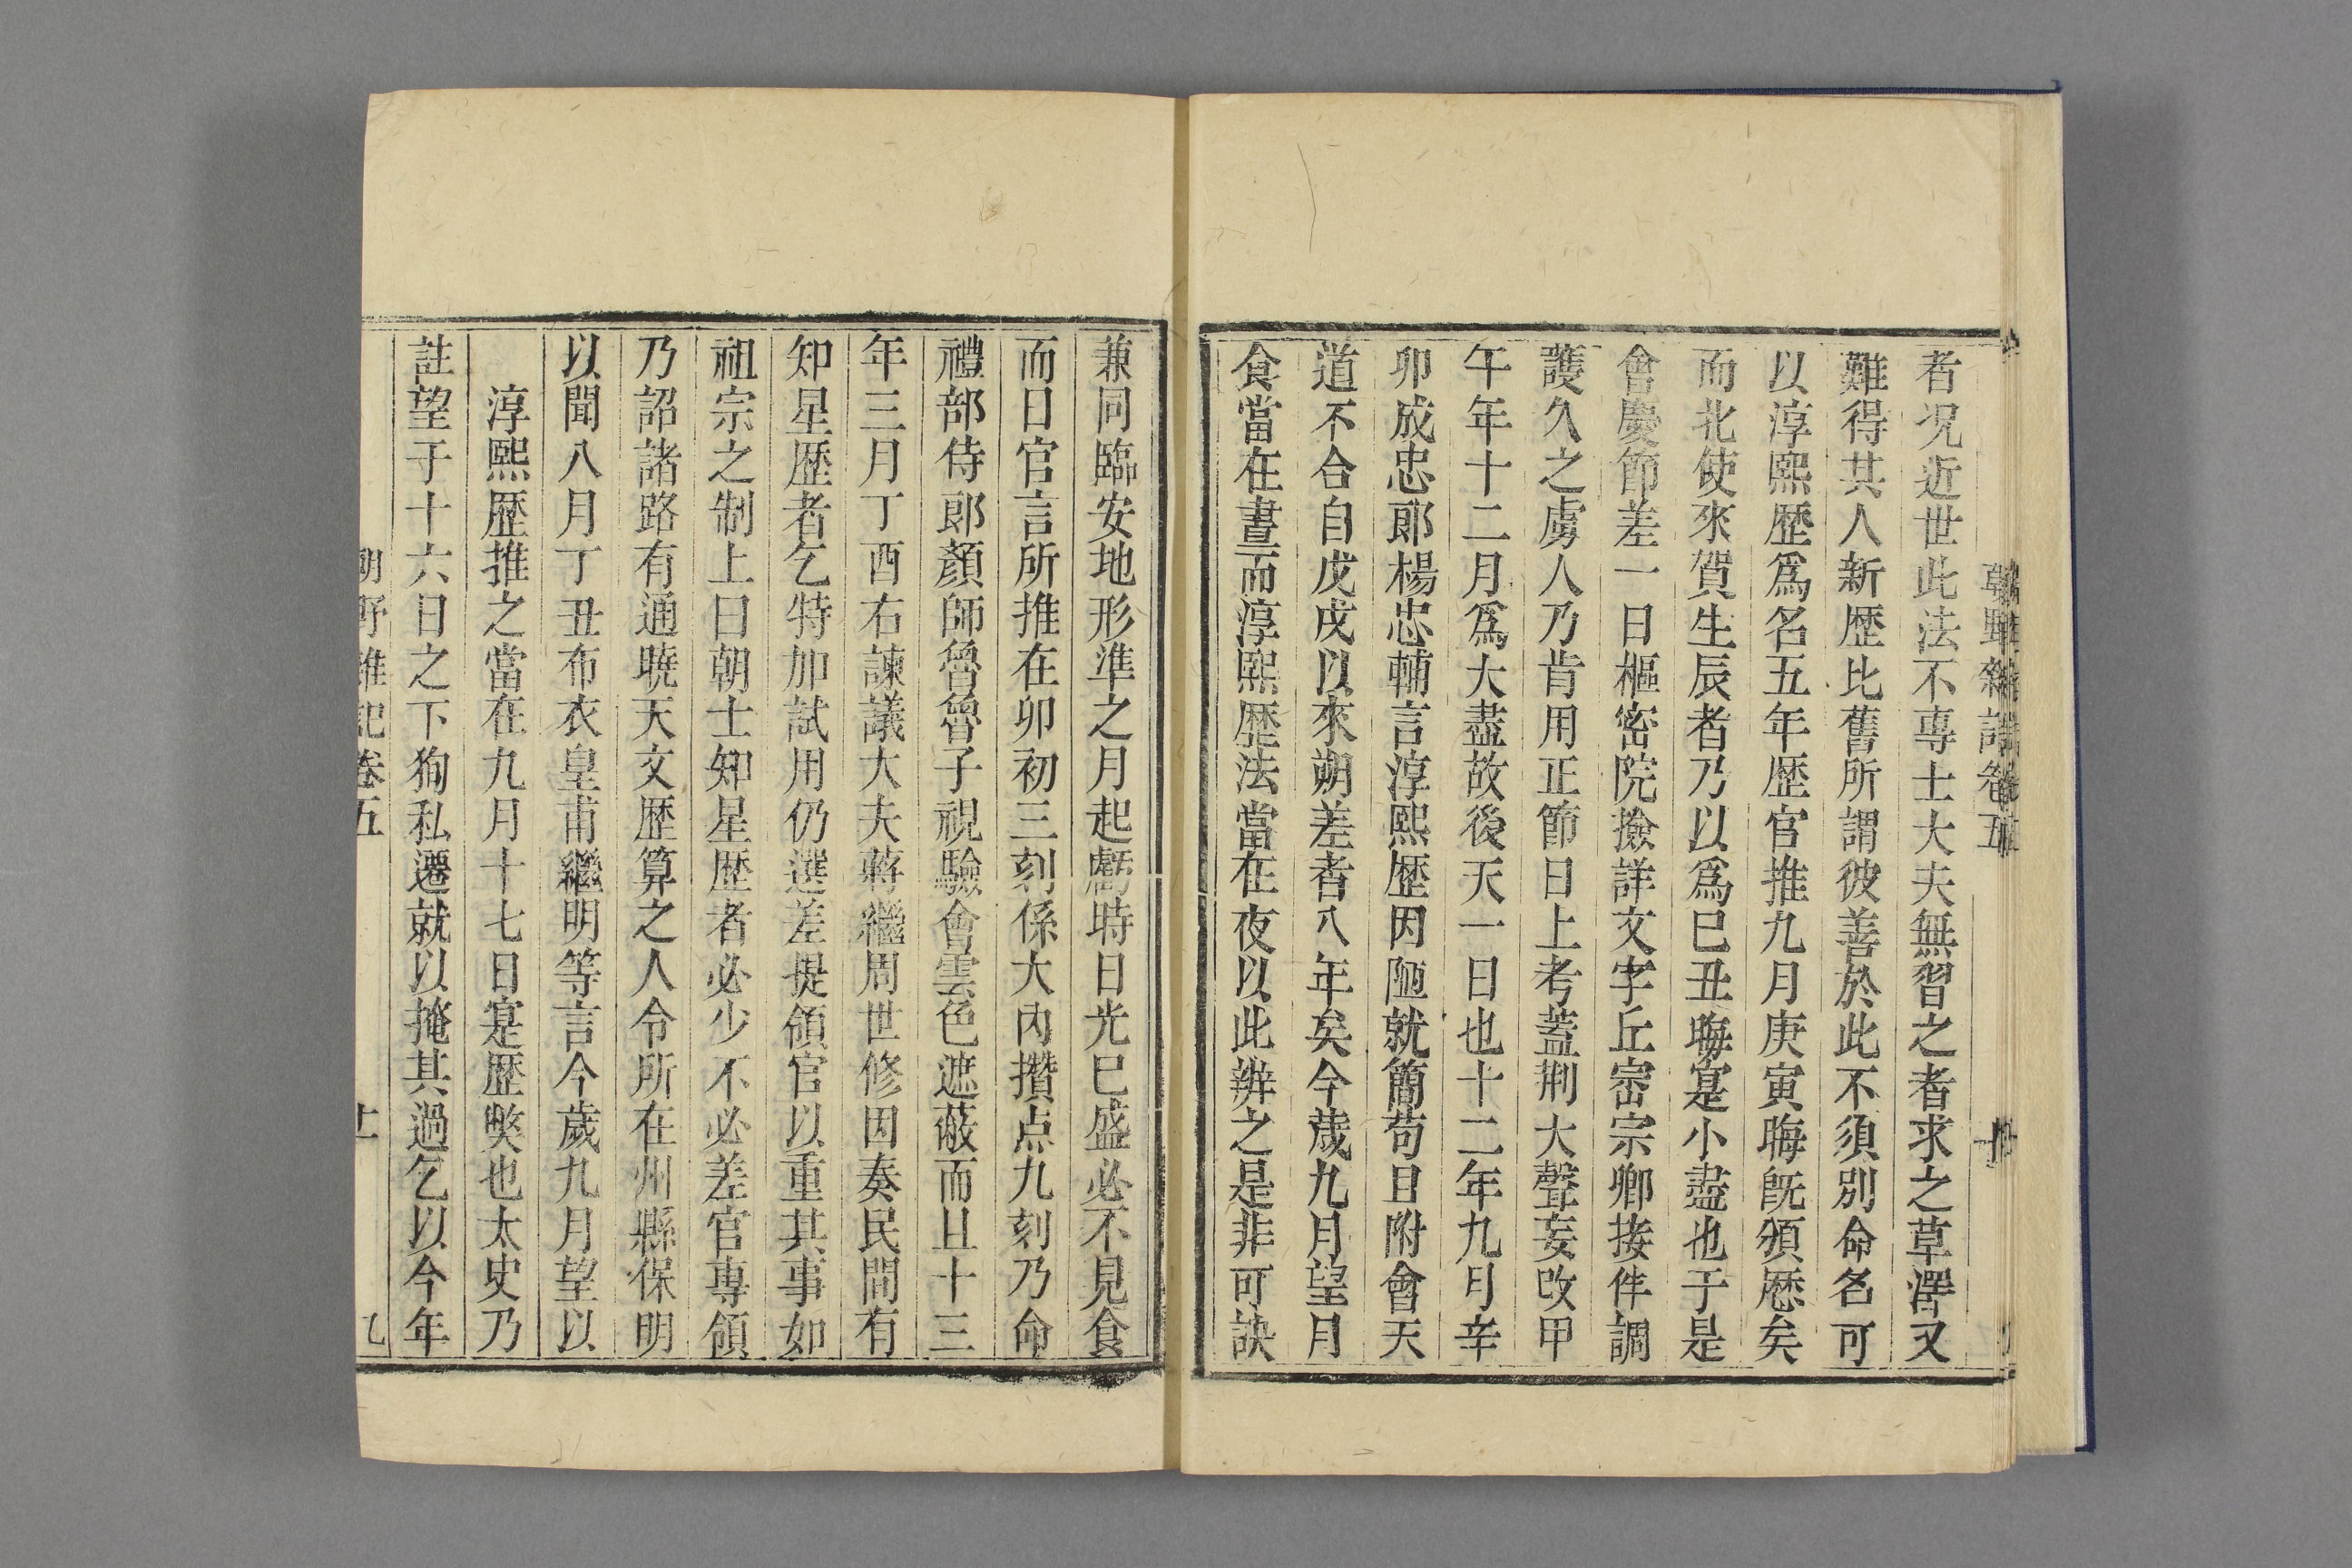 者況近世此法不專士大夫無習之者求之草澤又
難得其人新歴比舊所謂彼善於此不須別命名可
以淳熙歴爲名五年歴官推九月庚寅晦旣頒歴矣
而北使來賀生辰者乃以爲巳丑晦寔小盡也于是
會慶節差一日樞密院撿詳文字丘崈宗卿接伴調
護久之虜人乃肯用正節日上考蓋荆大聲妄改甲
午年十二月爲大盡故後天一日也十二年九月辛
卯成忠郎楊忠輔言淳熙歴因陋就簡苟日附會天
道不合自戊戌以來朔差者八年矣今歲九月望月
食當在晝而淳熙歴法當在夜以此辨之是非可訣
兼同臨安地形準之月起虧時日光巳盛必不見食
而日官言所推在卯初三刻係大內攢点九刻乃命
禮部侍郎顏師魯魯子視驗會雲色遮蔽而且十三
年三月丁酉右諫議大夫蔣繼周世修因奏民間有
知星歴者乞特加試用仍選差提領官以重其事如
祖宗之制上曰朝士知星歴者必少不必差官專領
乃詔諸路有通曉天文歴算之人令所在州縣保明
以聞八月丁丑布衣皇甫繼明等言今歲九月望以
淳熙歴推之當在九月十七日寔歴獘也太史乃
註望于十六日之下狥私遷就以掩其過乞以今年
朝野雜記卷五